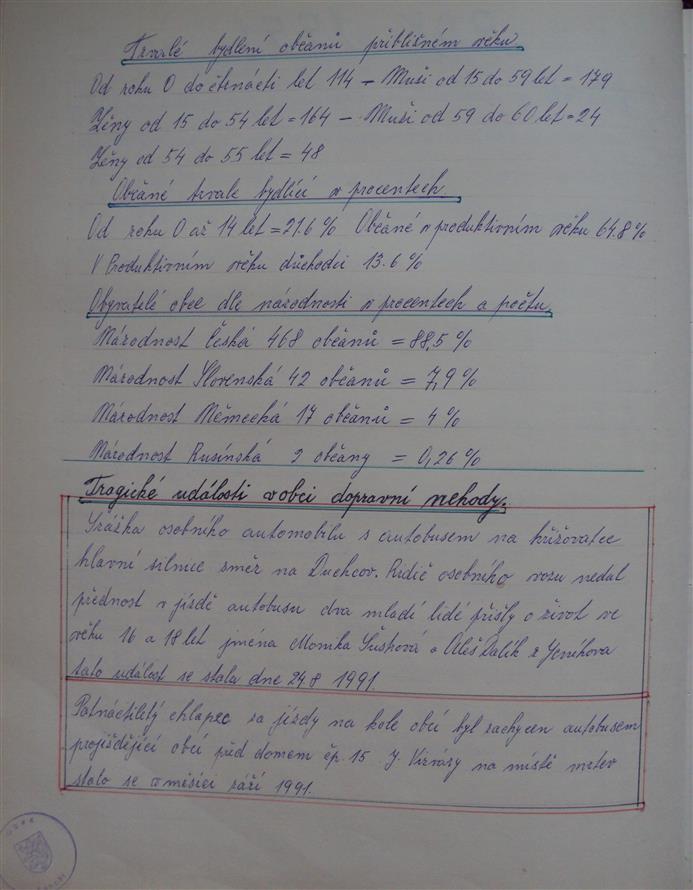 Trvalé bydlení občanů přibližném věku
Od roku 0 do čtrnácti let 114 – Muži od 15 do 59 let = 179
Žěny od 15 do 54 let = 164 – Muži od 59 do 60 let = 24
Žěny od 54 do 55 let = 48
Občané trvale bydlící v procentech.
Od roku 0 až 14 let = 21.6 % Občané v produktivním věku 64.8 %
V Produktivním věku důchodci 13.6 %
Obyvatelé obce dle národnosti v procentech a počtu.
Národnost Česká 468 občanů = 88,5 %
Národnost Slovenská 42 občanů = 7,9 %
Národnost Německá 17 občanů = 4 %
Národnost Rusínská 2 občany = 0,26 %
Tragické události v obci dopravní nehody.
Srážka osobního automobilu s autobusem na křižovatce
hlavní silnice směr na Duchcov. Řidič osobního vozu nedal
přednost v jízdě autobusu dva mladí lidé přišly o život ve
věku 16 a 18 let jména Monika a Aleš Dalík z Jeníkova
tato událost se stala dne 24.8 1991.
Patnáctiletý chlapec za jízdy na kole obcí byl zachycen autobusem
projíždějící obcí před domem čp. 15. J. na místě mrtev
stalo se v měsíci září 1991.